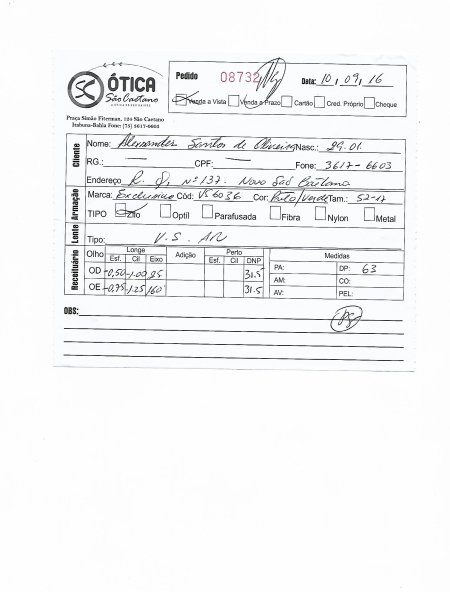 ÓTICA
São Caetano
Praça Simão Fiterman, 124 São Caetano
Itabuna-Bahia Fone: (73) 3617-6603
Pedido 08732 Data: 10, 09, 16
Venda a Vista Venda a Prazo Cartão Cred. Próprio Cheque
Cliente
Nome: Alexandre Santos de Oliveira Nasc.: 29.01.
RG.: CPF: Fone: 3617-6603
Endereço R. J, Nº 137. Novo São Caetano
Armação
Marca: Exclusiva Cód: VS6036 Cor: Preto/Verde Tam.: 52-17
TIPO Zilo Optil Parafusada Fibra Nylon Metal
Lente
Tipo: V.S. AR
Receituário
Olho Longe Adição Perto Medidas
Esf. Cil Eixo Esf. Cil DNP
OD -0,50 -1.00 95 31.5 PA: DP: 63
OE -0,75 -1.25 160 31.5 AM: CO:
AV: PEL:
OBS: